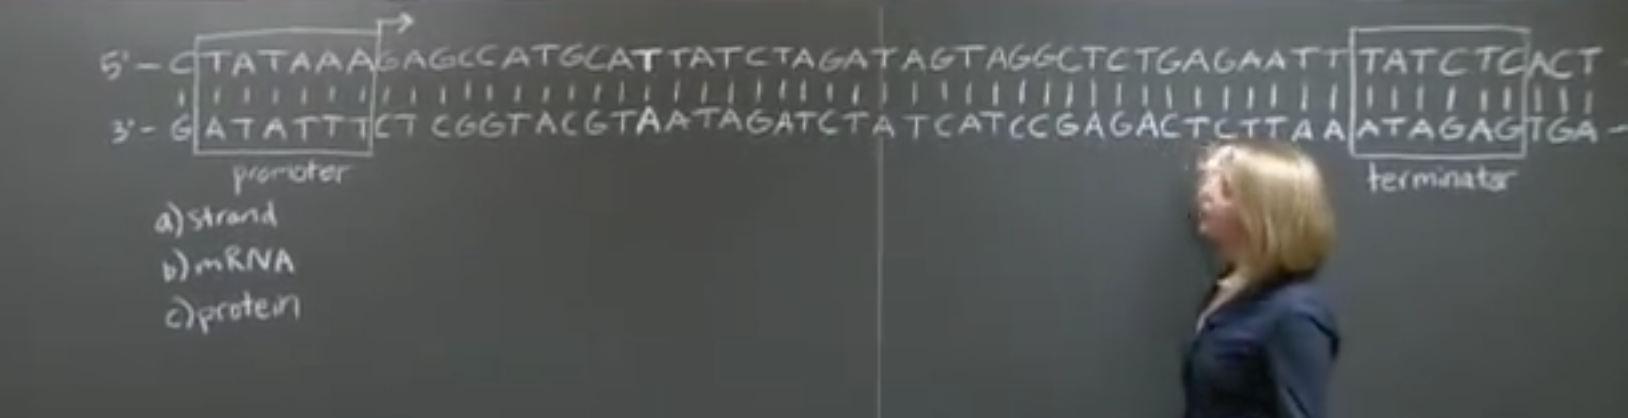 5'-CTATAAAGAGCCATGCATTATCTAGATAGTAGGCTCTGAGAATTTATCTCACT-
3'-GATATTTCTCGGTACGTAATAGATCTATCATCCGAGACTCTTAAATAGAGTGA-
promoter
terminator
a) strand
b) mRNA
c) protein